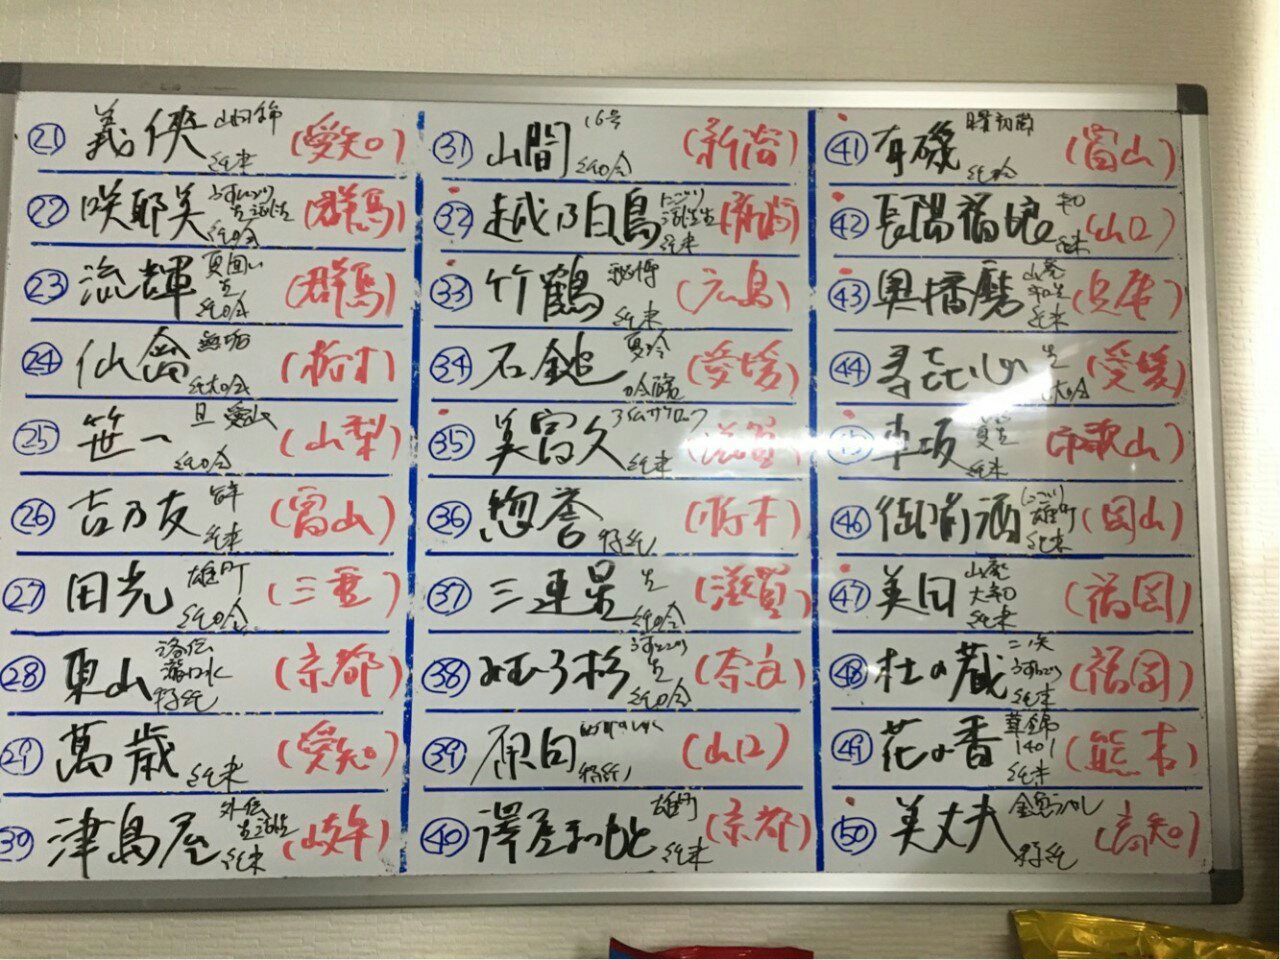 ㉑ 義侠 山田錦 純米 (愛知)
㉒ 咲耶美 うすにごり 生 活性 純吟 (群馬)
㉓ 流輝 夏囲い 生 純吟 (群馬)
㉔ 仙禽 無垢 純大吟 (栃木)
㉕ 笹一 旦 愛山 純吟 (山梨)
㉖ 吉乃友 純米 (富山)
㉗ 田光 雄町 純吟 (三重)
㉘ 東山 洛伝 瀧口水 特純 (京都)
㉙ 萬歳 純米 (愛知)
㉚ 津島屋 外伝 純米 (岐阜)
㉛ 山間 16号 純吟 (新潟)
㉜ 越乃白鳥 にごり 活性生 純米 (新潟)
㉝ 竹鶴 秘傳 純米 (広島)
㉞ 石鎚 夏吟 吟醸 (愛媛)
㉟ 美冨久 三仏サワロック 純米 (滋賀)
㊱ 惣誉 特純 (栃木)
㊲ 三連星 生 純吟 (滋賀)
㊳ みむろ杉 うすにごり 生 純吟 (奈良)
㊴ 原田 特純 (山口)
㊵ 澤屋まつもと 雄町 純米 (京都)
㊶ 有磯 曙 初嵐 純吟 (富山)
㊷ 長陽福娘 辛口 純米 (山口)
㊸ 奥播磨 山廃 純米 (兵庫)
㊹ 寿喜心 生 大吟 (愛媛)
㊺ 車坂 純米 (和歌山)
㊻ 御前酒 にごり 雄町 純米 (岡山)
㊼ 美田 山廃 大和 純米 (福岡)
㊽ 杜の蔵 二才 うすにごり 純米 (福岡)
㊾ 花の香 華錦 1401 純米 (熊本)
㊿ 美丈夫 特純 (高知)